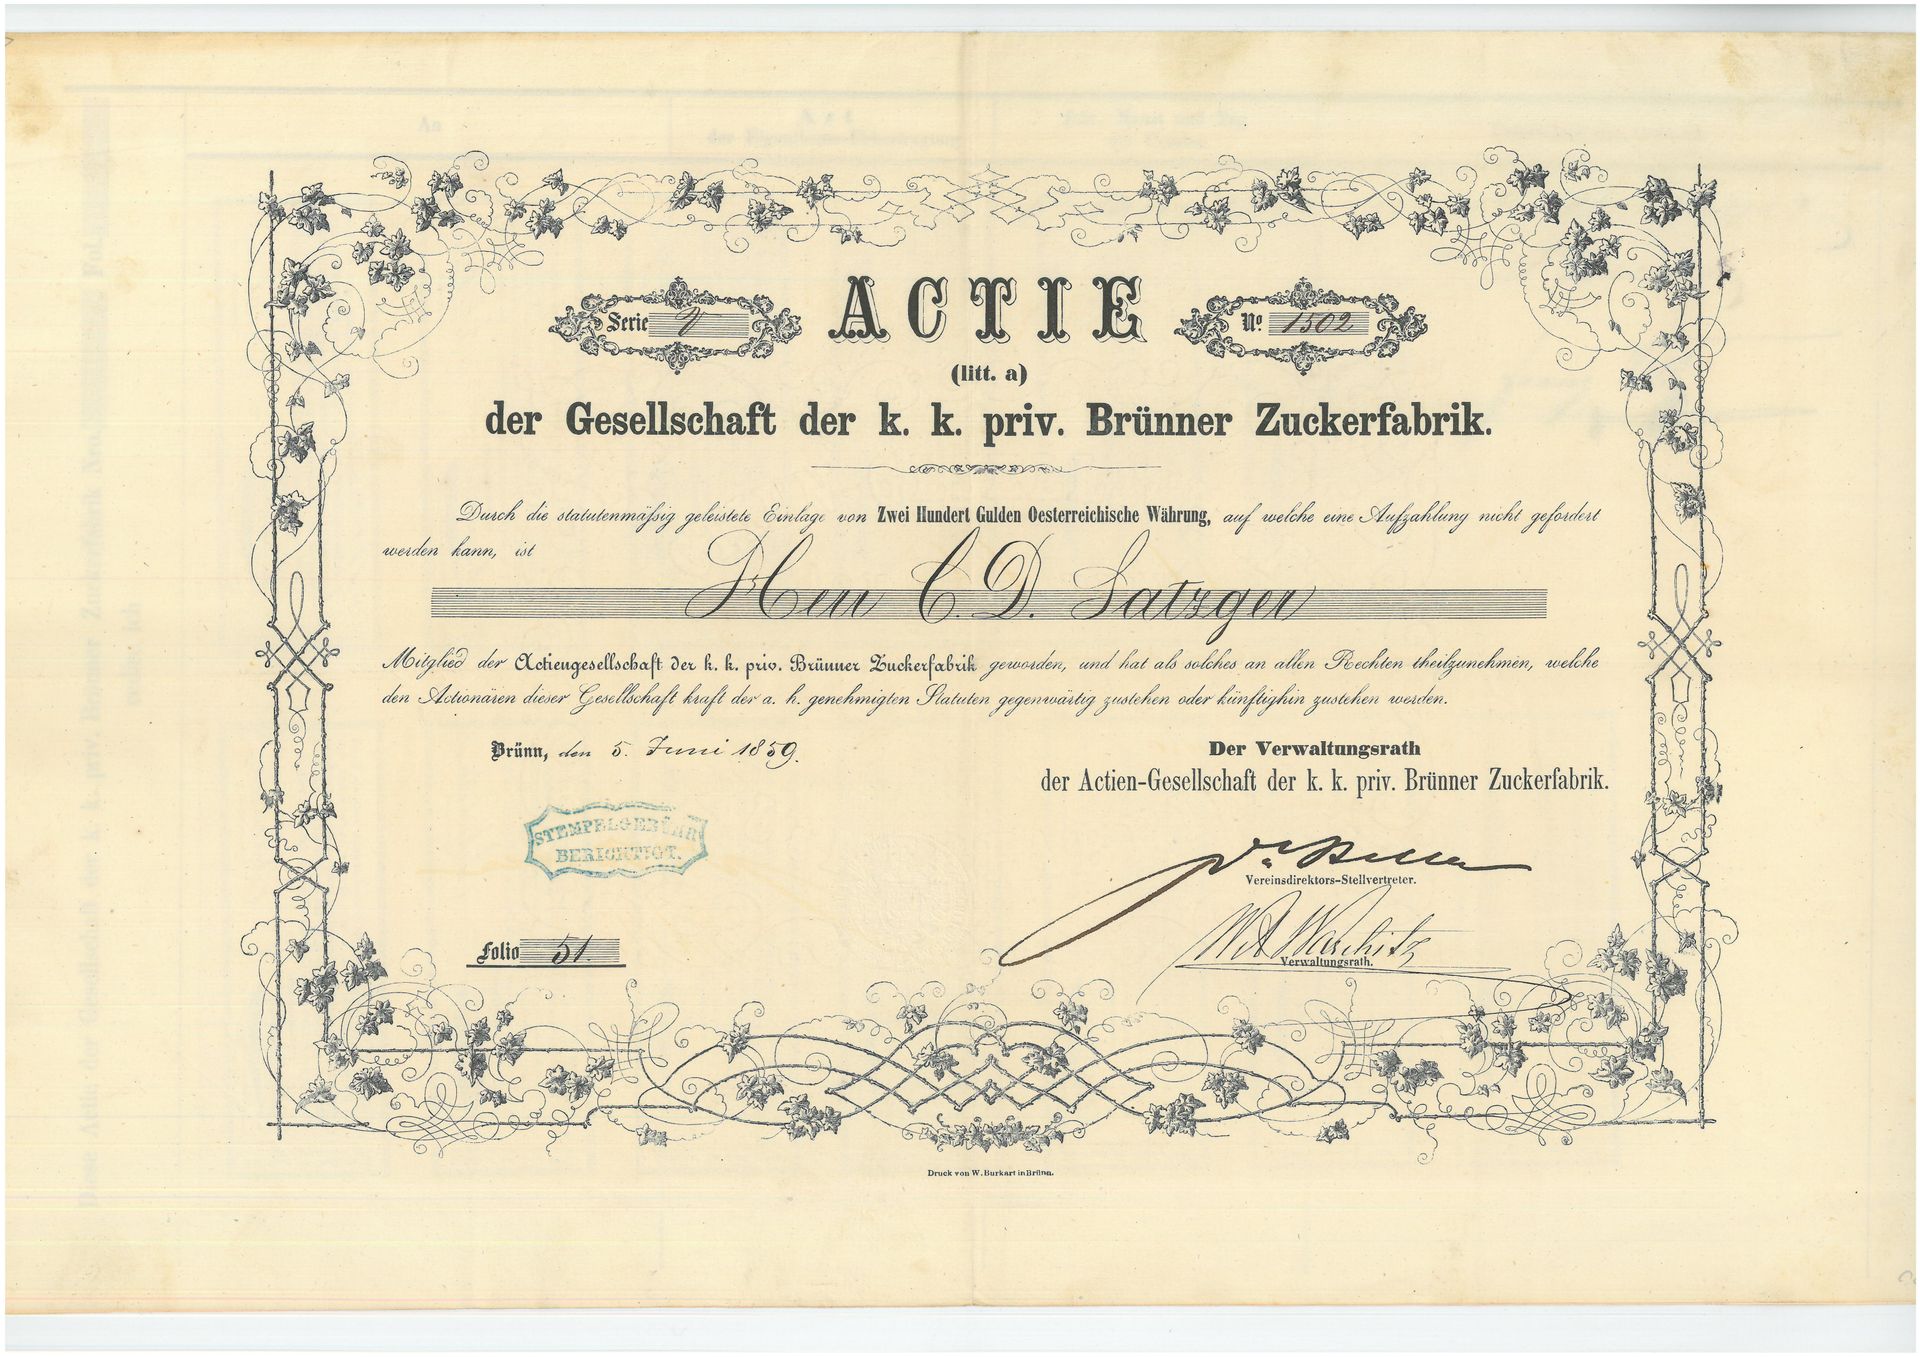 ACTIE
Serie V
No. 1502
(litt. a)
der Gesellschaft der k. k. priv. Brünner Zuckerfabrik.
Durch die statutenmäßig geleistete Einlage von Zwei Hundert Gulden Oesterreichische Währung, auf welche eine Aufzahlung nicht gefordert
werden kann, ist
Herr C. D. Satzger
Mitglied der Actiengesellschaft der k. k. priv. Brünner Zuckerfabrik geworden, und hat als solches an allen Rechten theilzunehmen, welche
den Actionären dieser Gesellschaft kraft der a. h. genehmigten Statuten gegenwärtig zustehen oder künftighin zustehen werden.
Brünn, den 5. Juni 1859.
Der Verwaltungsrath
der Actien-Gesellschaft der k. k. priv. Brünner Zuckerfabrik.
STEMPELGEBÜHR
BERICHTIGT.
Vereinsdirektors-Stellvertreter.
Verwaltungsrath.
Folio 51.
Druck von W. Burkart in Brünn.